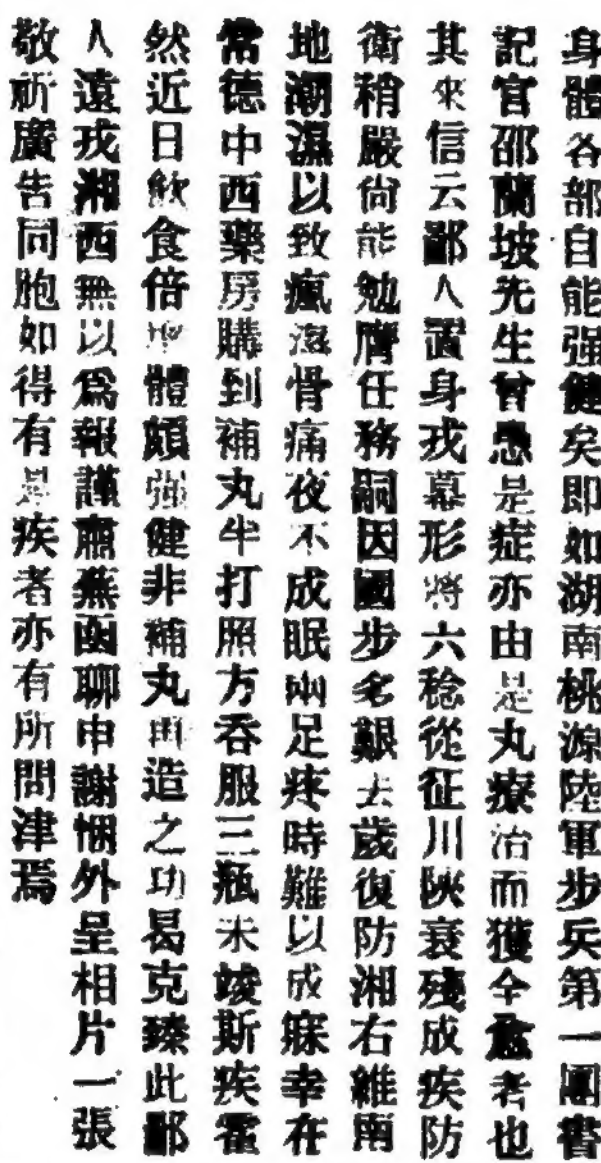 身體各部自能强健矣即如湖南桃源陸軍步兵第一團書
記官邵蘭坡先生曾患是症亦由是丸療治而獲全愈者也
其來信云鄙人置身戎幕形將六稔從征川陝衰殘成疾防
衛稍嚴尙能勉膺任務嗣因國步多艱去歲復防湘右雜南
地潮濕以致瘋濕骨痛夜不成眠兩足疼時難以成寐幸在
常德中西藥房購到補丸半打照方吞服三瓶未竣斯疾霍
然近日飲食倍增體頗强健非補丸再造之功曷克臻此鄙
人遠戎湘西無以爲報謹肅蕪函聊申謝悃外呈相片一張
敬祈廣告同胞如得有是疾者亦有所問津焉